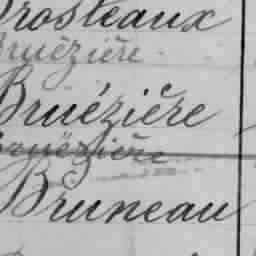 Brosteaux
Bruézière
Bruézière
Bruézière
Bruneau